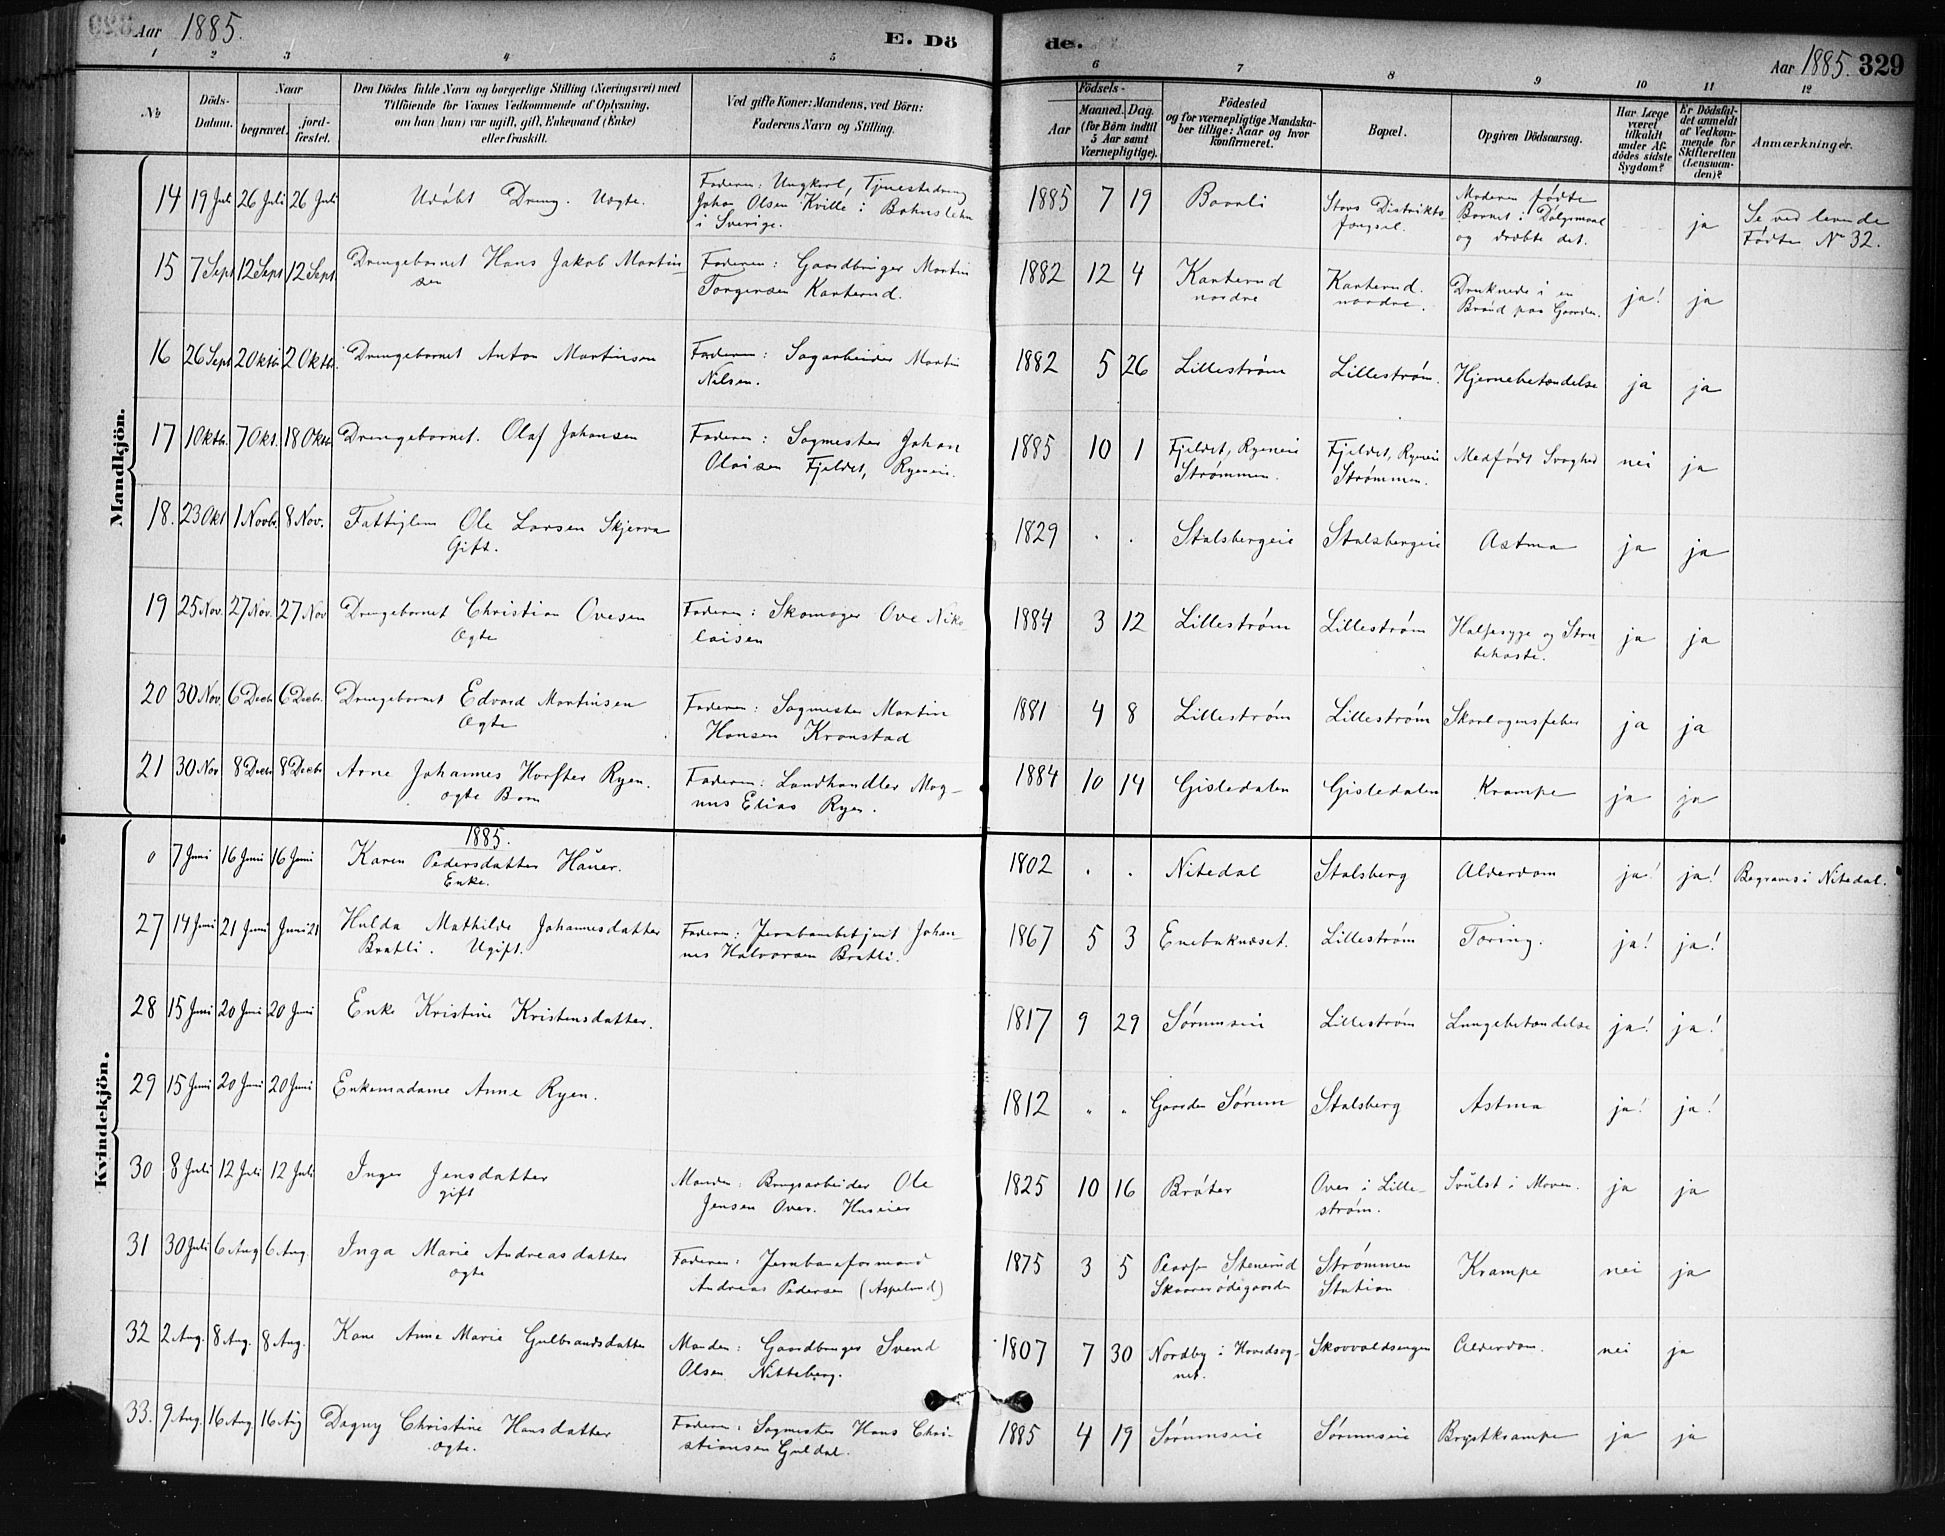 Aar 1885.
E. Döde.
Aar 1885. 329
1 2 3 4 5 6 7 8 9 10 11 12
No
Döds-Datum.
Naar
begravet.
jord-fæstet.
Den Dödes fulde Navn og borgerlige Stilling (Næringsvei) med
Tilföiende for Voxnes Vedkommende af Oplysning,
om han (hun) var ugift, gift, Enkemand (Enke)
eller fraskilt.
Ved gifte Koner: Mandens, ved Börn:
Faderens Navn og Stilling.
Födsels-
Aar
Maaned. Dag.
(for Börn indtil
5 Aar samt
Værnepligtige).
Födested
og for værnepligtige Mandska-
ber tillige: Naar og hvor
konfirmeret.
Bopæl.
Opgiven Dödsaarsag.
Har Læge
været
tilkaldt
under Af-
dödes sidste
Sygdom?
Er Dödsfal-
det anmeldt
af Vedkom-
mende for
Skifteretten
(Lensman-
den)?
Anmærkninger.
Mandkjön.
14 19 Juli 26 Juli 26 Juli Udøbt Dreng. Uægte. Faderen: Ungkarl, Tjenestedreng
Johan Olsen Kville i Bohuslehn
i Sverige.
1885 7 19 Baarli Stavs Distrikts
fængsel. Moderen fødte
Barnet i Dølgsmaal
og dræbte det. ja Se ved levende
Fødte No 32.
15 7 Sept 12 Sept 12 Sept. Drengebarnet Hans Jakob Martin-
sen Faderen: Gaardbruger Martin
Torgersen Kanterud.
1882 12 4 Kanterud
nordre Kanterud.
nordre. Druknede i en
Brønd paa Gaarden. ja! ja
16 26 Sept 2 Oktb 2 Oktb. Drengebarnet Anton Martinsen Faderen: Sagarbeider Martin
Nilsen.
1882 5 26 Lillestrøm Lillestrøm. Hjernebetændelse ja ja
17 1 Oktb. 7 Okt. 18 Oktb Drengebarnet. Olaf Johansen Faderen: Sagmester Johan
Olaisen Fjeldet, Ryeneie.
1885 10 1 Fjeldet, Ryeneie
Strømmen. Fjeldet, Ryeneie
Strømmen. Medfødt Svaghed nei ja
18. 23 Okt 1 Novb. 8 Nov. Fattiglem Ole Larsen Skjerva
Gift.
1829 . . Stalsbergeie Stalsbergeie Astma ja ja
19 25 Nov. 27 Nov. 27 Nov Drengebarnet Christian Ovesen
Ægte Faderen: Skomager Ove Niko-
laisen
1884 3 12 Lillestrøm Lillestrøm Halsesyge og Stru-
behoste. ja ja
20 30 Nov 6 Decb 6 Decb. Drengebarnet Edvard Martinsen
Ægte Faderen: Sagmester Martin
Hansen Kranstad
1881 4 8 Lillestrøm Lillestrøm Skarlagensfeber ja ja
21 30 Nov 8 Decb 8 Decb. Arne Johannes Ryen.
ægte Barn Faderen: Landhandler Mag-
nus Elias Ryen.
1884 10 14 Gisledalen Gisledalen Krampe ja ja
Kvindekjön.
1885.
7 Juni 16 Juni 16 Juni Karen Pedersdatter Hauer.
Enke.
1802 . . Nitedal Stalsberg Alderdom ja! ja! Begraves i Nitedal.
27 14 Juni 21 Juni Juni 21 Hulda Mathilde Johannesdatter
Bratli. Ugift. Faderen: Jernbanebetjent Johan-
nes Halvorsen Bratli.
1867 5 3 Enebaknæset. Lillestrøm Tæring. ja! ja!
28 15 Juni 20 Juni 20 Juni Enke Kristine Kristensdatter.
1817 9 29 Sørumseie Lillestrøm Lungebetændelse ja! ja!
29 15 Juni 20 Juni 20 Juni Enkemadame Anne Ryen.
1812 " " Gaarden Sørum Stalsberg Astma ja! ja!
30 8 Juli 12 Juli 12 Juli Inger Jensdatter
gift Manden: Brugsarbeider Ole
Jensen Over. Huseier
1825 10 16 Bråter Over i Lille-
strøm. Svulst i Maven. ja ja
31 30 Juli 6 Aug 6 Aug. Inga Marie Andreasdatter
ægte Faderen: Jernbaneformand
Andreas Pedersen (Aspelund)
1875 3 5 Stenerud
Strømmen
Station Krampe nei ja
32 2 Aug. 8 Aug. 8 Aug. Kone Anne Marie Gulbrandsdatter Manden: Gaardbruger Svend
Olsen Nitteberg.
1807 7 30 Nordby i Hovedsog-
net. Skovvoldsengen Alderdom. nei ja
33. 9 Aug. 16 Aug 16 Aug Dagny Christine Hansdatter
ægte. Faderen: Sagmester Hans Chri-
stiansen Guldal.
1885 4 19 Sørumseie Sørumseie Brystkrampe ja ja